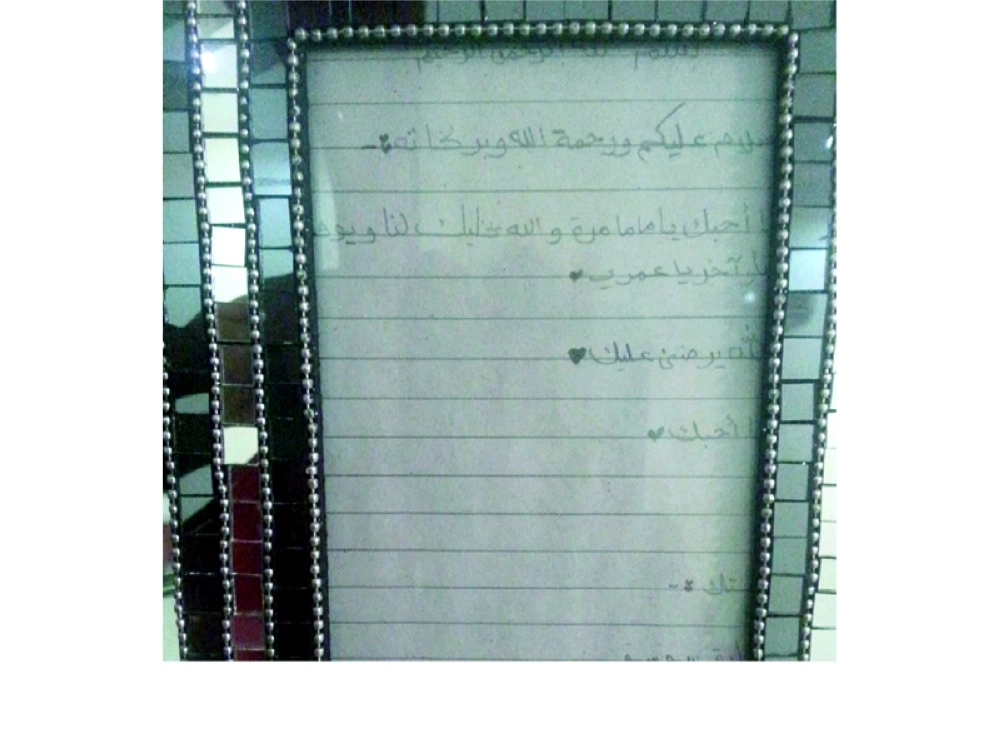 بسم الله الرحمن الرحيم
سلام عليكم ورحمة الله وبركاته :-
أحبك يا ماما مرة والله يخليك لنا ويو
آخر يا عمري ♥
الله يرضى عليك ♥
أحبك ♥